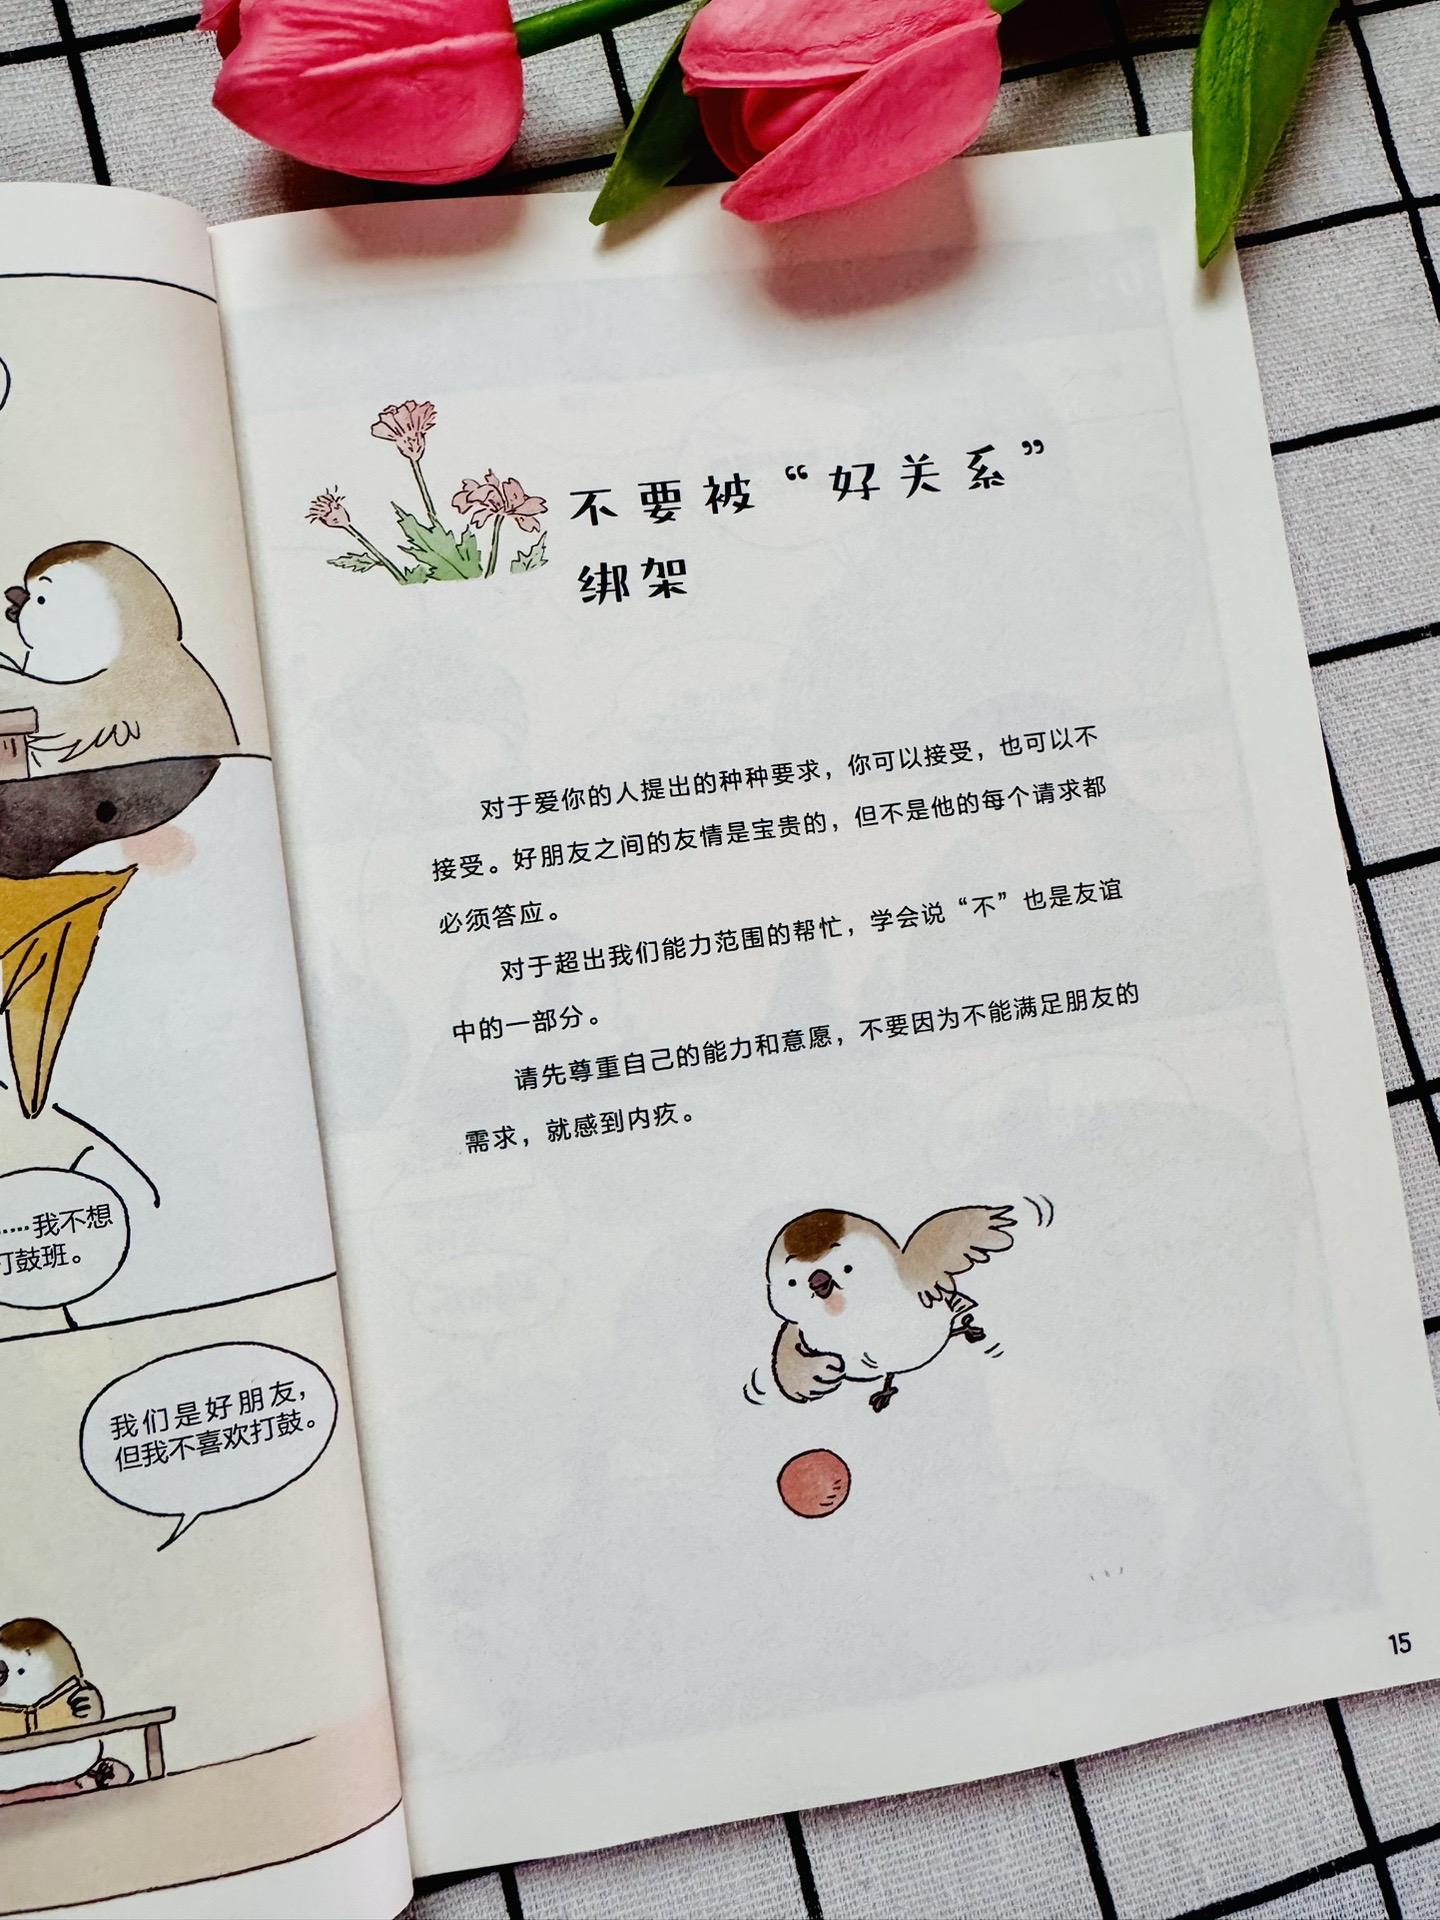 ……我不想
打鼓班。
我们是好朋友，
但我不喜欢打鼓。
不要被“好关系”
绑架
对于爱你的人提出的种种要求，你可以接受，也可以不
接受。好朋友之间的友情是宝贵的，但不是他的每个请求都
必须答应。
对于超出我们能力范围的帮忙，学会说“不”也是友谊
中的一部分。
请先尊重自己的能力和意愿，不要因为不能满足朋友的
需求，就感到内疚。
15